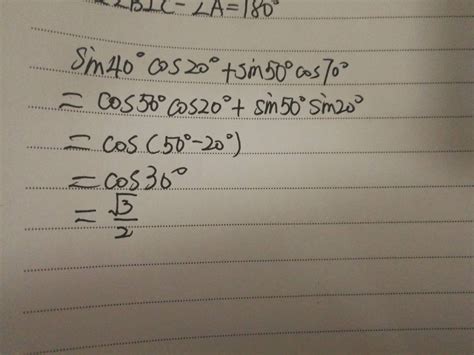 ∠BIC-∠A=180°
sin40°cos20°+sin50°cos70°
=cos50°cos20°+sin50°sin20°
=cos(50°-20°)
=cos30°
=√3/2